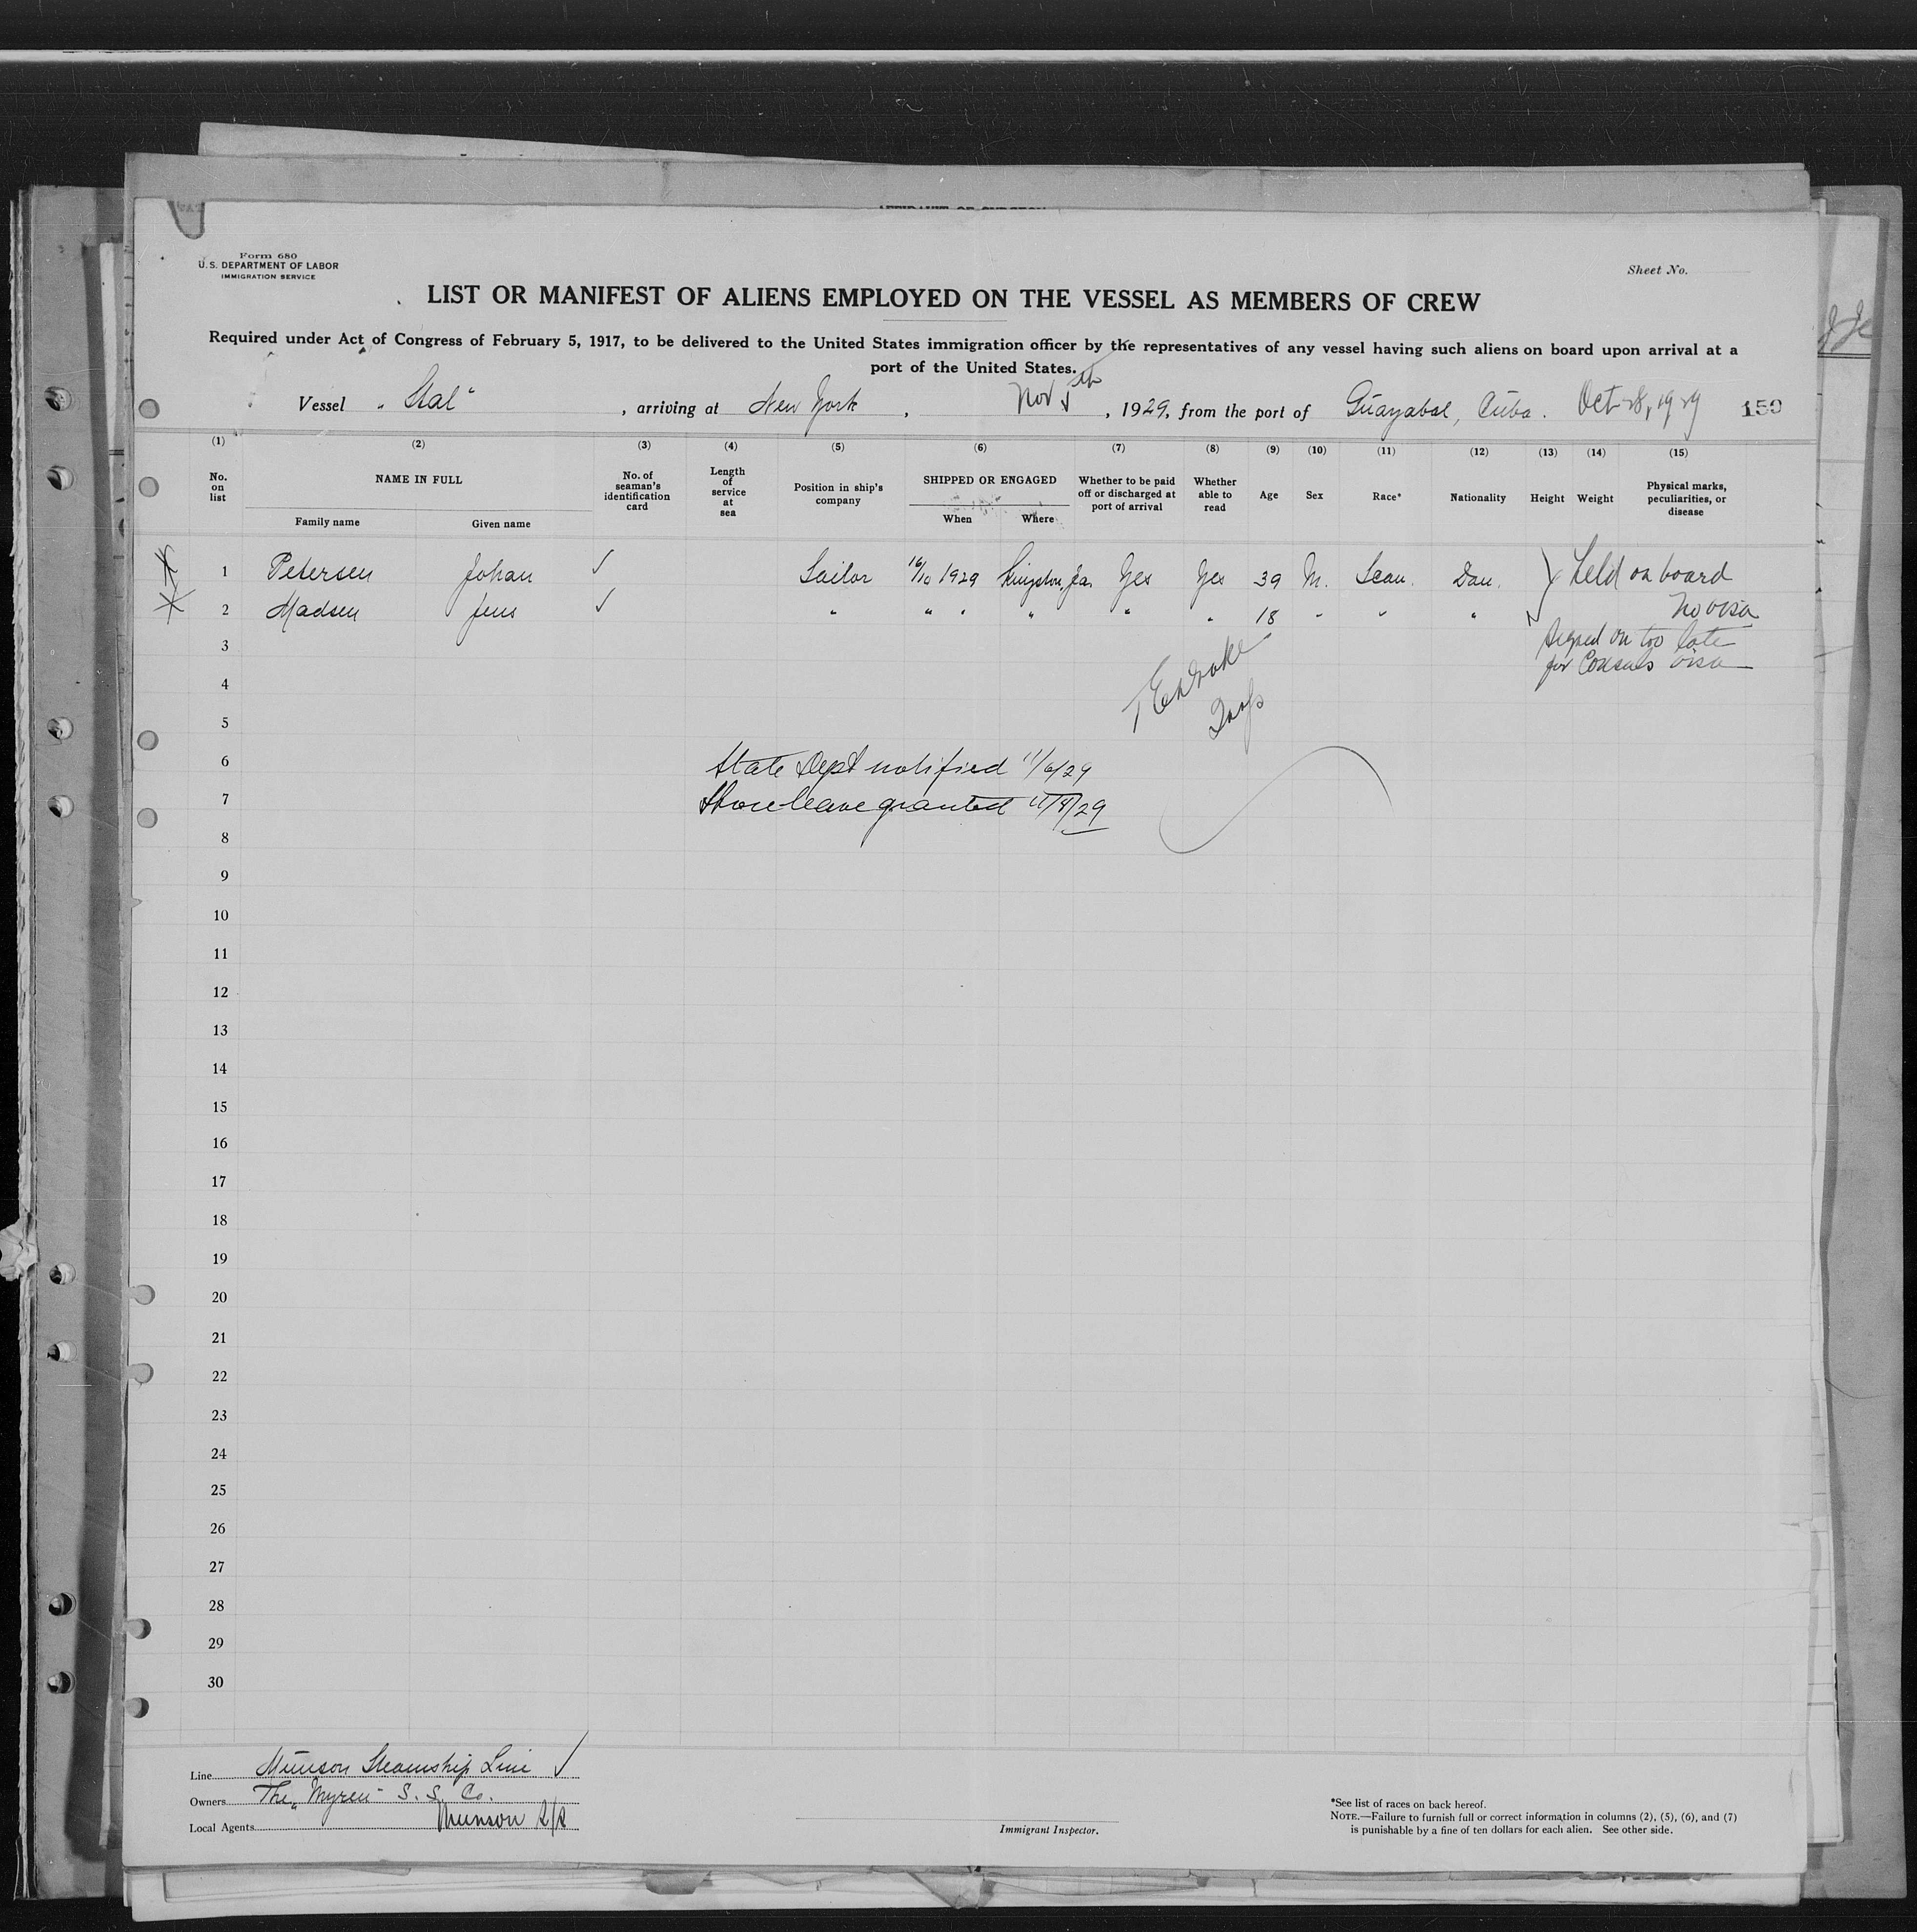 AFFIDAVIT OF SURGEON
Form 680
U.S. DEPARTMENT OF LABOR
IMMIGRATION SERVICE
Sheet No.
LIST OR MANIFEST OF ALIENS EMPLOYED ON THE VESSEL AS MEMBERS OF CREW
Required under Act of Congress of February 5, 1917, to be delivered to the United States immigration officer by the representatives of any vessel having such aliens on board upon arrival at a
port of the United States.
Vessel "Stal", arriving at New York, Nov 5th, 1929, from the port of Guayabal, Cuba. Oct 28, 1929 150
(1) (2) (3) (4) (5) (6) (7) (8) (9) (10) (11) (12) (13) (14) (15)
No. on list NAME IN FULL Family name Given name No. of seaman's identification card Length of service at sea Position in ship's company SHIPPED OR ENGAGED When Where Whether to be paid off or discharged at port of arrival Whether able to read Age Sex Race* Nationality Height Weight Physical marks, peculiarities, or disease
1 Petersen Johan ✓ Sailor 16/10 1929 Kingston, Ja. Yes Yes 39 M. Scan. Dan. Held on board
2 Madsen Jens ✓ " " " " " " 18 " " " No visa
3 Signed on too late
4 for Consuls visa
5
6 State Dept notified 11/6/29
7 Shore leave granted 11/8/29
8
9
10
11
12
13
14
15
16
17
18
19
20
21
22
23
24
25
26
27
28
29
30
Line Munson Steamship Line ✓
Owners The "Myren" S. S. Co.
Local Agents Munson S/S
Immigrant Inspector.
*See list of races on back hereof.
NOTE.—Failure to furnish full or correct information in columns (2), (5), (6), and (7)
is punishable by a fine of ten dollars for each alien. See other side.